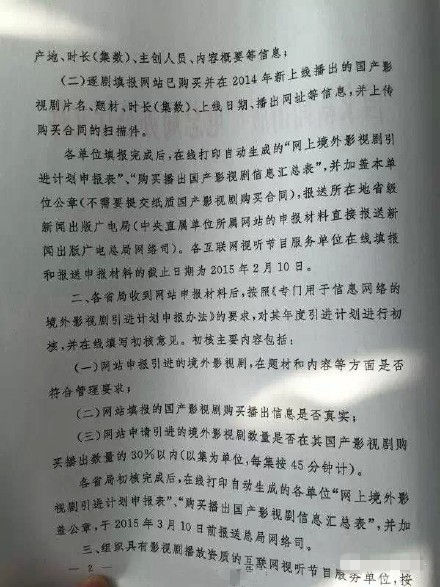 产地、时长(集数)、主创人员、内容概要等信息;
(二)逐剧填报网站已购买并在2014年新上线播出的国产影
视剧片名、题材、时长(集数)、上线日期、播出网址等信息,并上传
购买合同的扫描件。
各单位填报完成后,在线打印自动生成的“网上境外影视剧引
进计划申报表”、“购买播出国产影视剧信息汇总表”,并加盖本单
位公章(不需要提交纸质国产影视剧购买合同),报送所在地省级
新闻出版广电局(中央直属单位所属网站的申报材料直接报送新
闻出版广电总局网络司)。各互联网视听节目服务单位在线填报
和报送申报材料的截止日期为2015年2月10日。
二、各省局收到网站申报材料后,按照《专门用于信息网络的
境外影视剧引进计划申报办法》的要求,对其年度引进计划进行初
核,并在线填写初核意见。初核主要内容包括:
(一)网站申报引进的境外影视剧,在题材和内容等方面是否
符合管理要求;
(二)网站填报的国产影视剧购买播出信息是否真实;
(三)网站申请引进的境外影视剧数量是否在其国产影视剧购
买播出数量的30%以内(以集为单位,每集按45分钟计)。
各省局初核完成后,在线打印自动生成的各单位“网上境外影
视剧引进计划申报表”、“购买播出国产影视剧信息汇总表”,并加
盖公章,于2015年3月10日前报送总局网络司。
三、组织具有影视剧播放资质的互联网视听节目服务单位,按
— 2 —